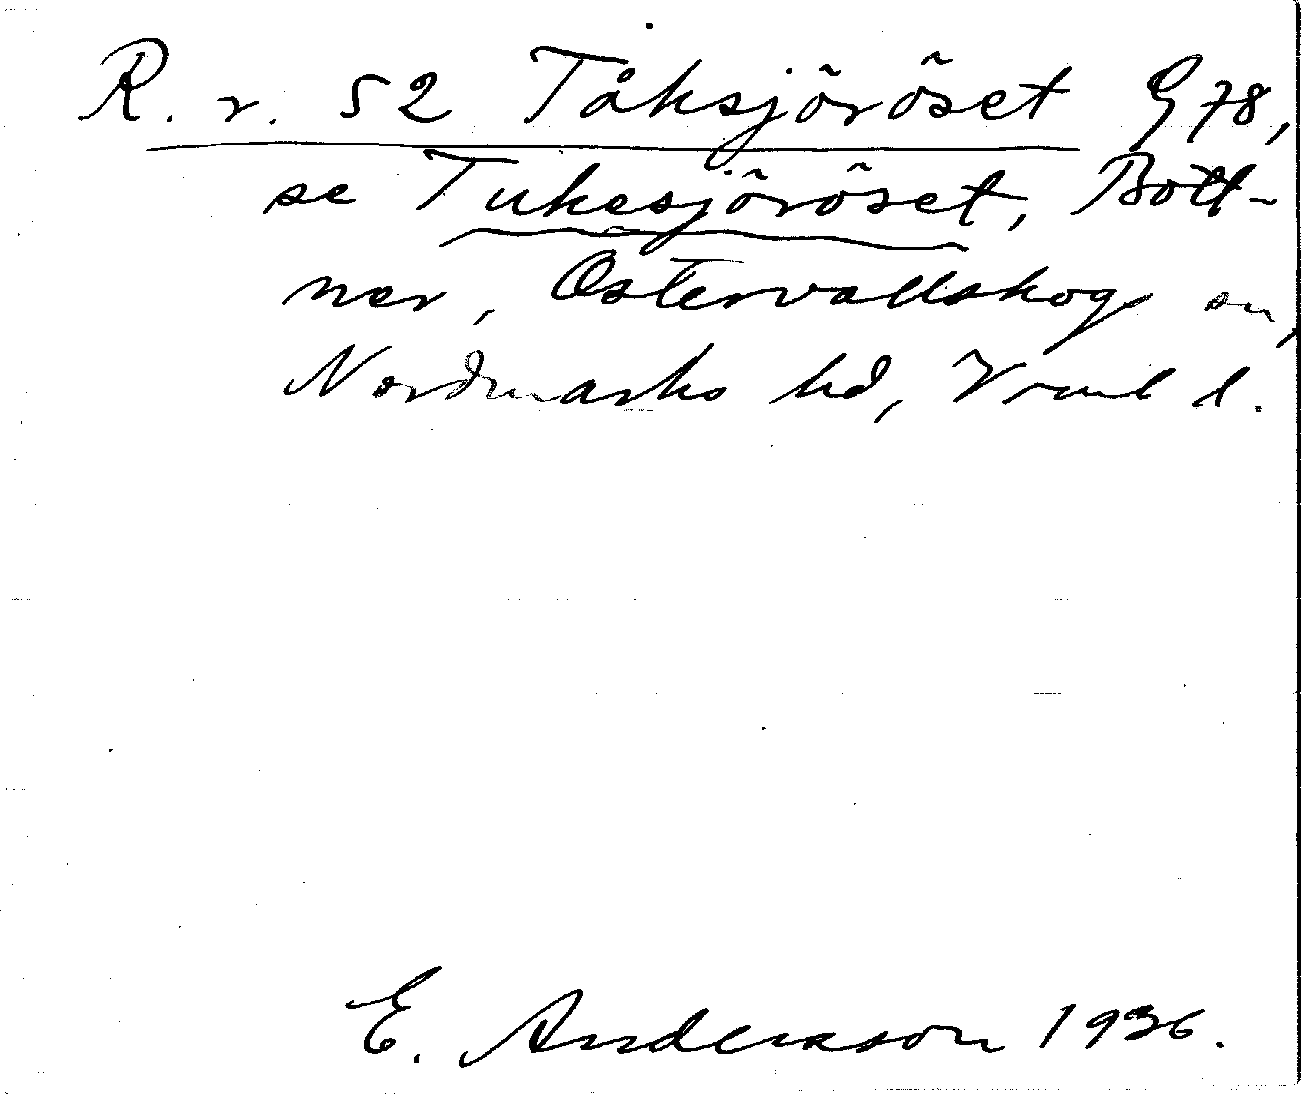 R. r. 52 Tåksjöröset G 78,
se Tukesjöröset, Bott-
ner, Östervallskog sn,
Nordmarks hd, Vrml l.
E. Andersson 1936.